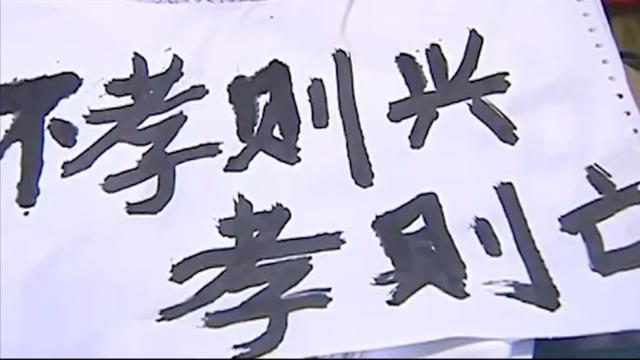 不孝则兴
孝则亡